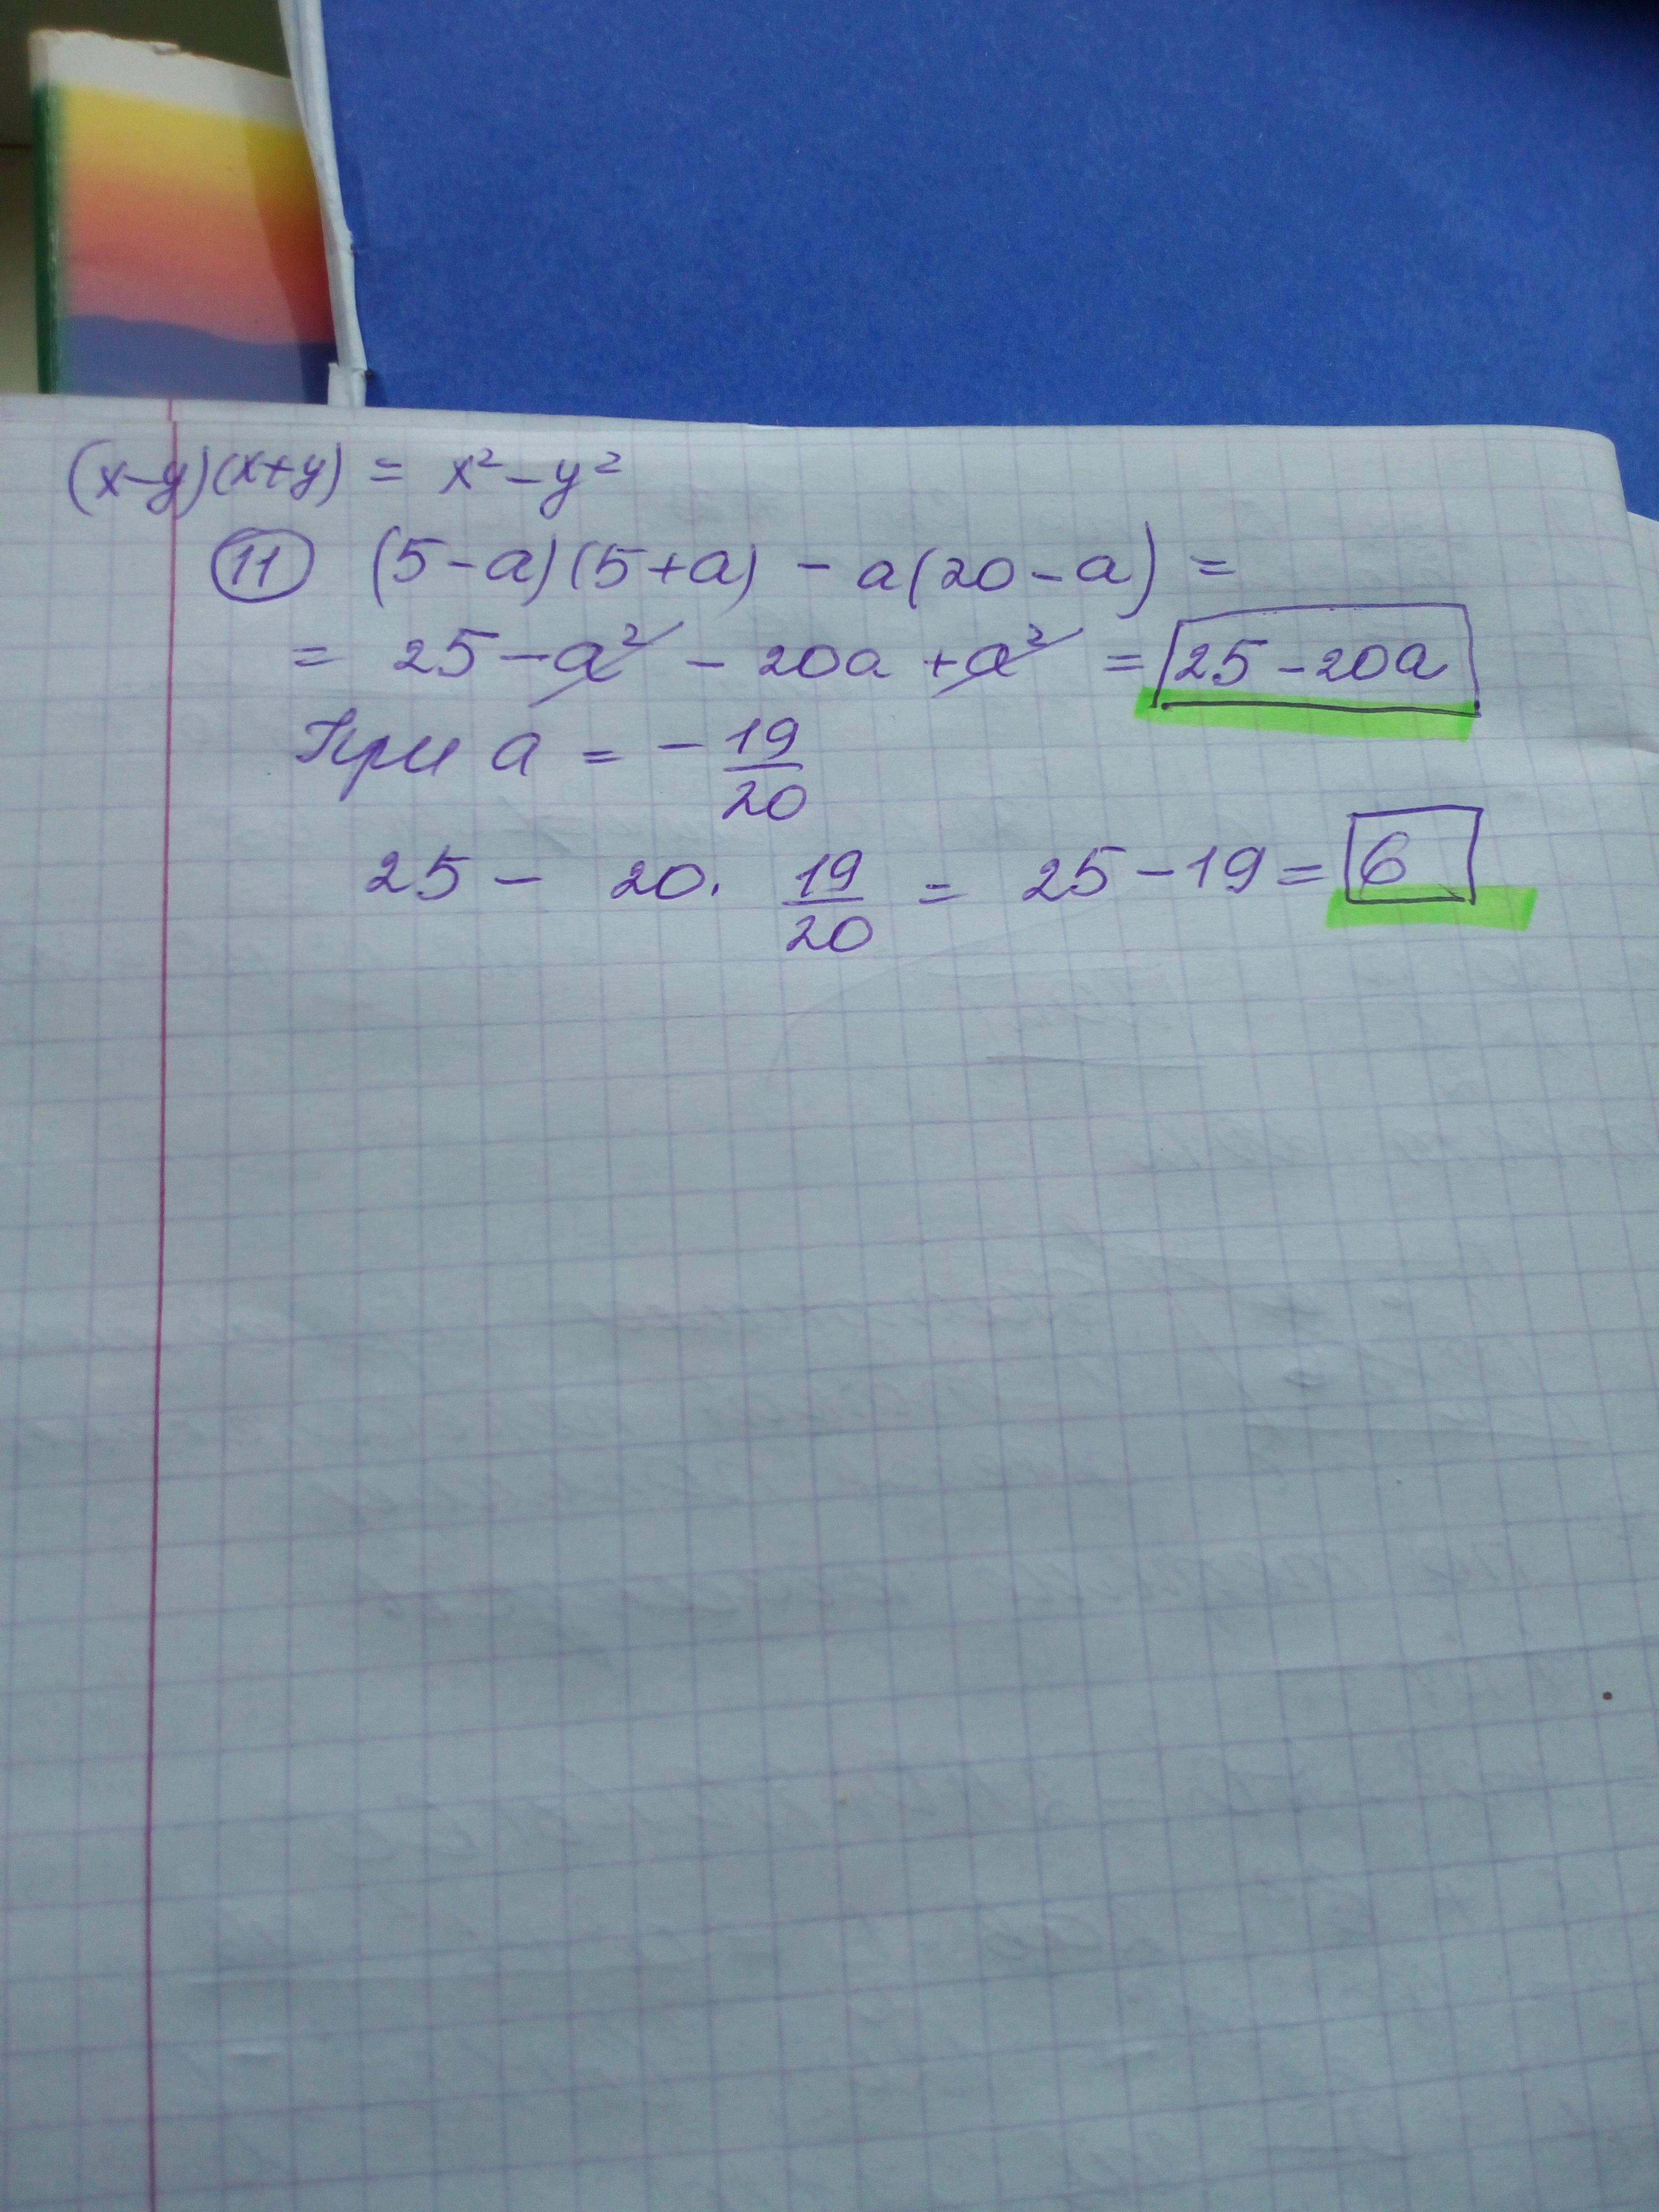 (x-y)(x+y) = x² - y²
11 (5-a)(5+a) - a(20-a) =
= 25 - a² - 20a + a² = 25 - 20a
При a = - 19/20
25 - 20 · 19/20 = 25 - 19 = 6